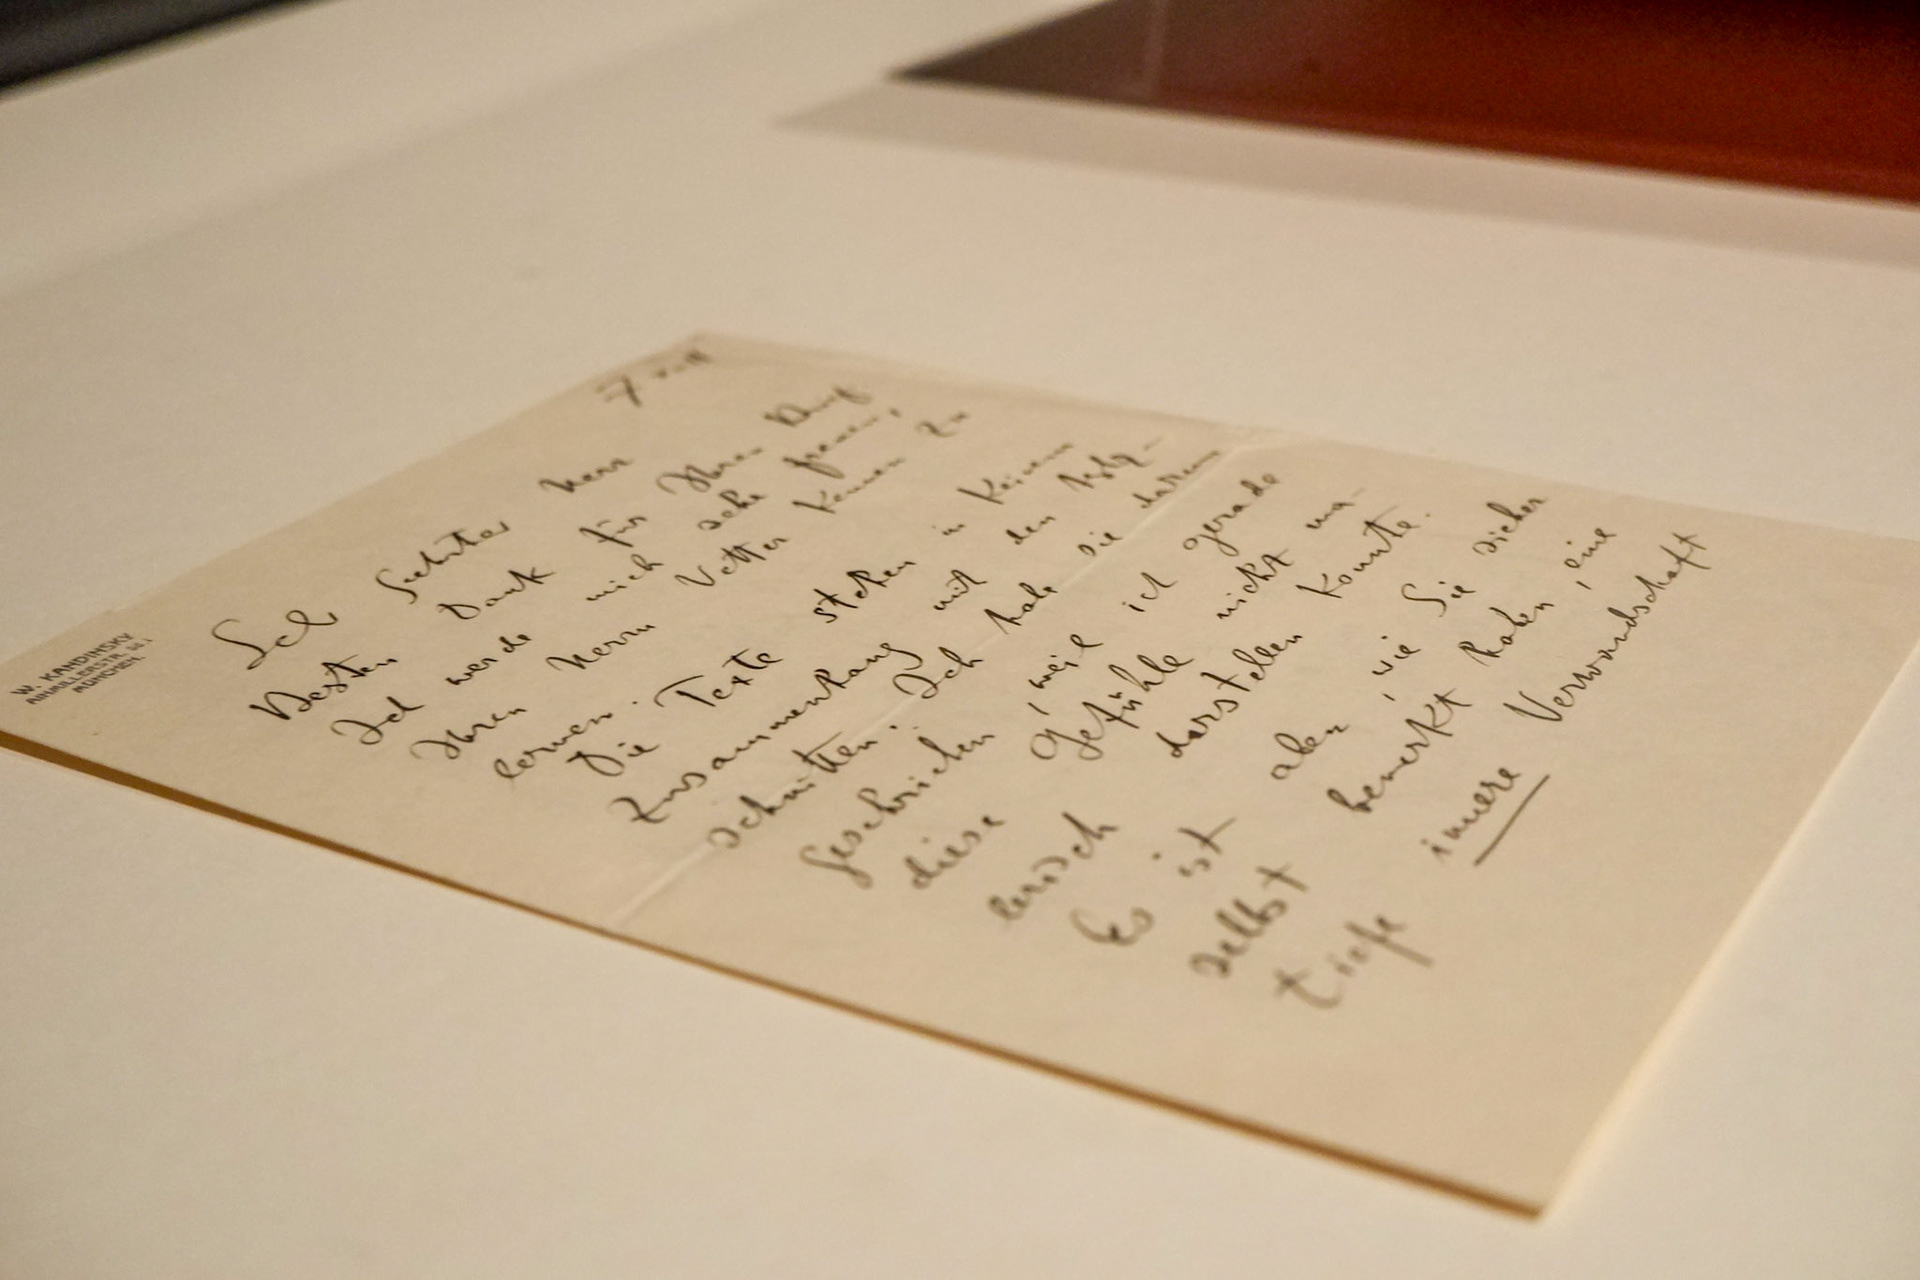 W. KANDINSKY
AINMILLERSTR. 36 I
MÜNCHEN.
Sehr Geehrter Herr
Besten Dank für Ihren Brief
Ich werde mich sehr freuen,
Ihren Herrn Vetter kennen zu
lernen.
Die Texte stehen in keinem
Zusammenhang mit den Holz-
schnitten. Ich habe sie darum
geschrieben, weil ich gerade
diese Gefühle nicht ma-
lerisch darstellen konnte.
Es ist aber, wie Sie sicher
selbst bemerkt haben, eine
tiefe innere Verwandschaft